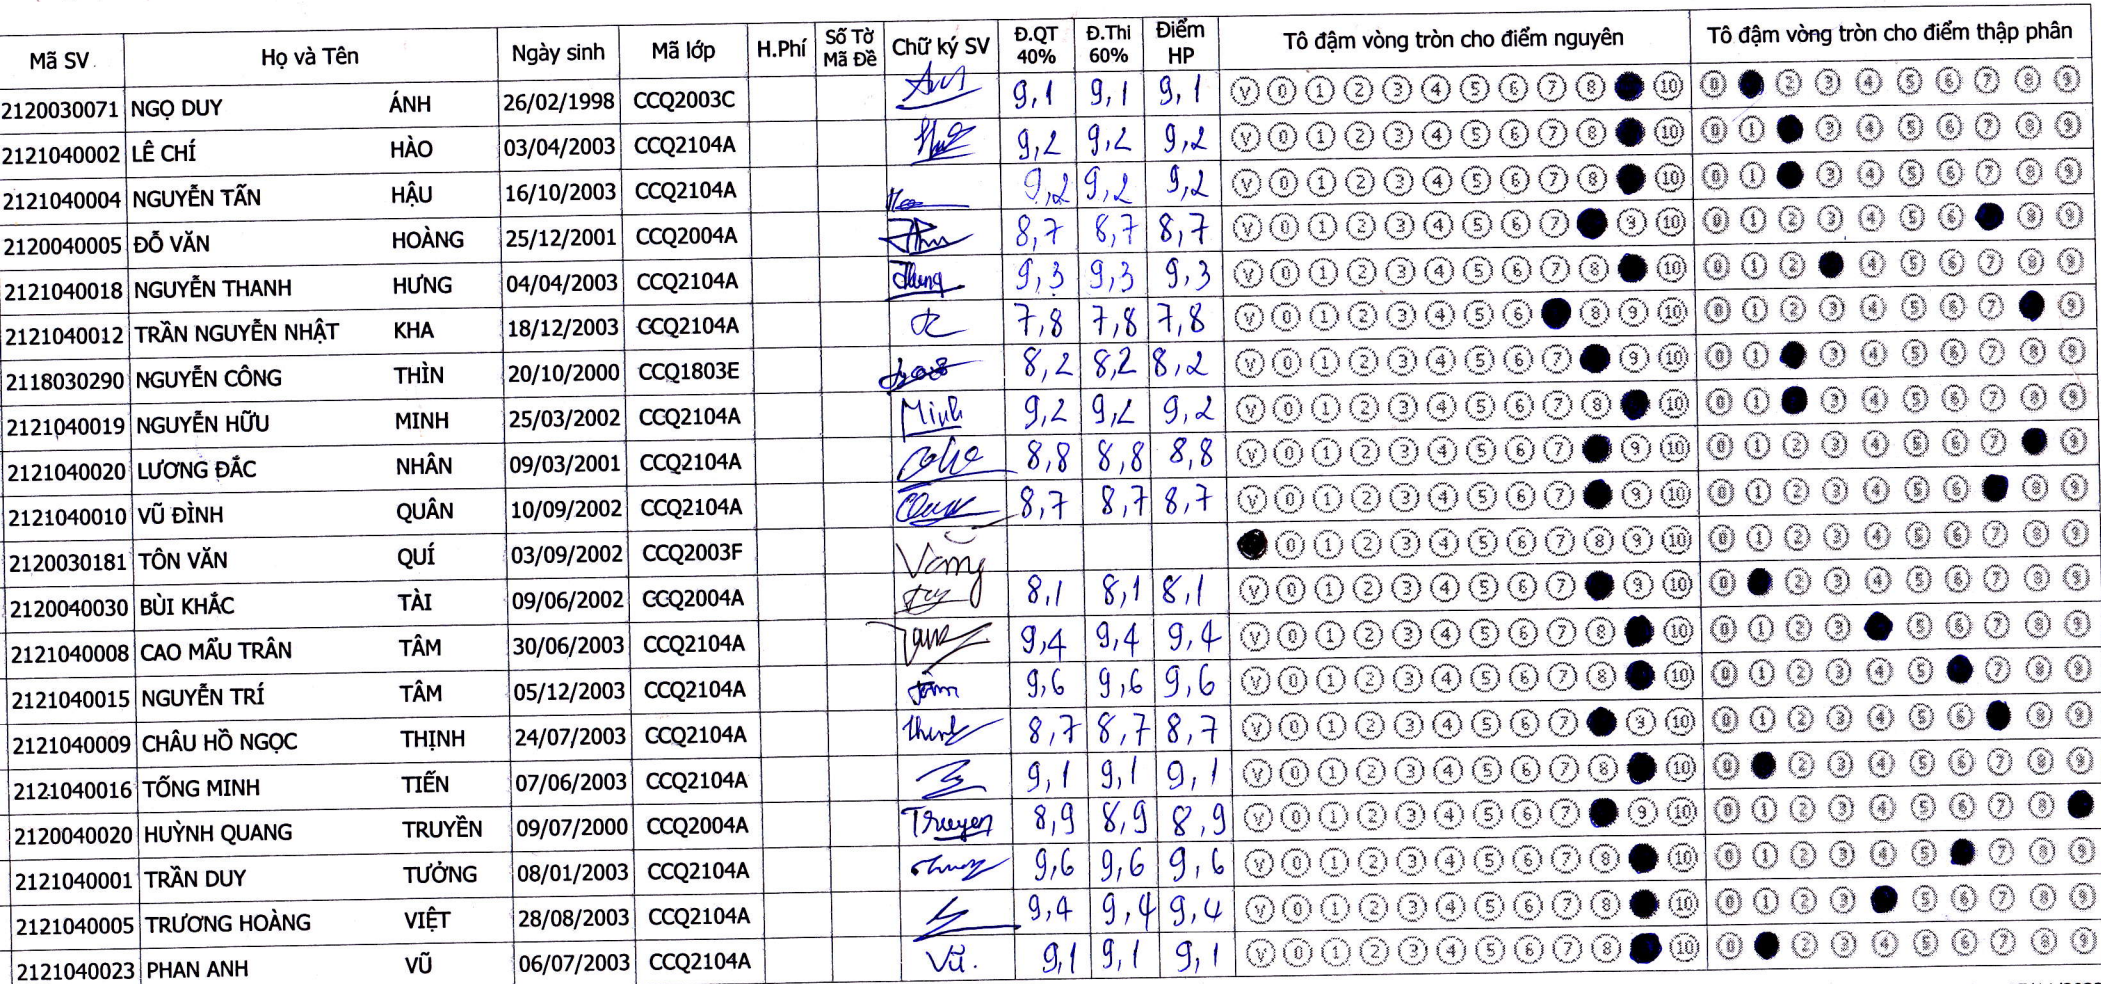 Mã SV Họ và Tên Ngày sinh Mã lớp H.Phí Số Tờ Mã Đề Chữ ký SV Đ.QT 40% Đ.Thi 60% Điểm HP Tô đậm vòng tròn cho điểm nguyên Tô đậm vòng tròn cho điểm thập phân
2120030071 NGỌ DUY ÁNH 26/02/1998 CCQ2003C 9,1 9,1 9,1 V 0 1 2 3 4 5 6 7 8 10 0 2 3 4 5 6 7 8 9
2121040002 LÊ CHÍ HÀO 03/04/2003 CCQ2104A 9,2 9,2 9,2 V 0 1 2 3 4 5 6 7 8 10 0 1 3 4 5 6 7 8 9
2121040004 NGUYỄN TẤN HẬU 16/10/2003 CCQ2104A 9,2 9,2 9,2 V 0 1 2 3 4 5 6 7 8 10 0 1 3 4 5 6 7 8 9
2120040005 ĐỖ VĂN HOÀNG 25/12/2001 CCQ2004A 8,7 8,7 8,7 V 0 1 2 3 4 5 6 7 9 10 0 1 2 3 4 5 6 8 9
2121040018 NGUYỄN THANH HƯNG 04/04/2003 CCQ2104A Hưng 9,3 9,3 9,3 V 0 1 2 3 4 5 6 7 8 10 0 1 2 4 5 6 7 8 9
2121040012 TRẦN NGUYỄN NHẬT KHA 18/12/2003 CCQ2104A 7,8 7,8 7,8 V 0 1 2 3 4 5 6 8 9 10 0 1 2 3 4 5 6 7 9
2118030290 NGUYỄN CÔNG THÌN 20/10/2000 CCQ1803E 8,2 8,2 8,2 V 0 1 2 3 4 5 6 7 9 10 0 1 3 4 5 6 7 8 9
2121040019 NGUYỄN HỮU MINH 25/03/2002 CCQ2104A Minh 9,2 9,2 9,2 V 0 1 2 3 4 5 6 7 8 10 0 1 3 4 5 6 7 8 9
2121040020 LƯƠNG ĐẮC NHÂN 09/03/2001 CCQ2104A 8,8 8,8 8,8 V 0 1 2 3 4 5 6 7 9 10 0 1 2 3 4 5 6 7 9
2121040010 VŨ ĐÌNH QUÂN 10/09/2002 CCQ2104A 8,7 8,7 8,7 V 0 1 2 3 4 5 6 7 9 10 0 1 2 3 4 5 6 8 9
2120030181 TÔN VĂN QUÍ 03/09/2002 CCQ2003F Vắng 0 1 2 3 4 5 6 7 8 9 10 0 1 2 3 4 5 6 7 8 9
2120040030 BÙI KHẮC TÀI 09/06/2002 CCQ2004A 8,1 8,1 8,1 V 0 1 2 3 4 5 6 7 9 10 0 2 3 4 5 6 7 8 9
2121040008 CAO MẪU TRÂN TÂM 30/06/2003 CCQ2104A 9,4 9,4 9,4 V 0 1 2 3 4 5 6 7 8 10 0 1 2 3 5 6 7 8 9
2121040015 NGUYỄN TRÍ TÂM 05/12/2003 CCQ2104A Tâm 9,6 9,6 9,6 V 0 1 2 3 4 5 6 7 8 10 0 1 2 3 4 5 7 8 9
2121040009 CHÂU HỒ NGỌC THỊNH 24/07/2003 CCQ2104A Thịnh 8,7 8,7 8,7 V 0 1 2 3 4 5 6 7 9 10 0 1 2 3 4 5 6 8 9
2121040016 TỐNG MINH TIẾN 07/06/2003 CCQ2104A 9,1 9,1 9,1 V 0 1 2 3 4 5 6 7 8 10 0 2 3 4 5 6 7 8 9
2120040020 HUỲNH QUANG TRUYỀN 09/07/2000 CCQ2004A Truyen 8,9 8,9 8,9 V 0 1 2 3 4 5 6 7 9 10 0 1 2 3 4 5 6 7 8
2121040001 TRẦN DUY TƯỞNG 08/01/2003 CCQ2104A 9,6 9,6 9,6 V 0 1 2 3 4 5 6 7 8 10 0 1 2 3 4 5 7 8 9
2121040005 TRƯƠNG HOÀNG VIỆT 28/08/2003 CCQ2104A 9,4 9,4 9,4 V 0 1 2 3 4 5 6 7 8 10 0 1 2 3 5 6 7 8 9
2121040023 PHAN ANH VŨ 06/07/2003 CCQ2104A Vũ. 9,1 9,1 9,1 V 0 1 2 3 4 5 6 7 8 10 0 2 3 4 5 6 7 8 9